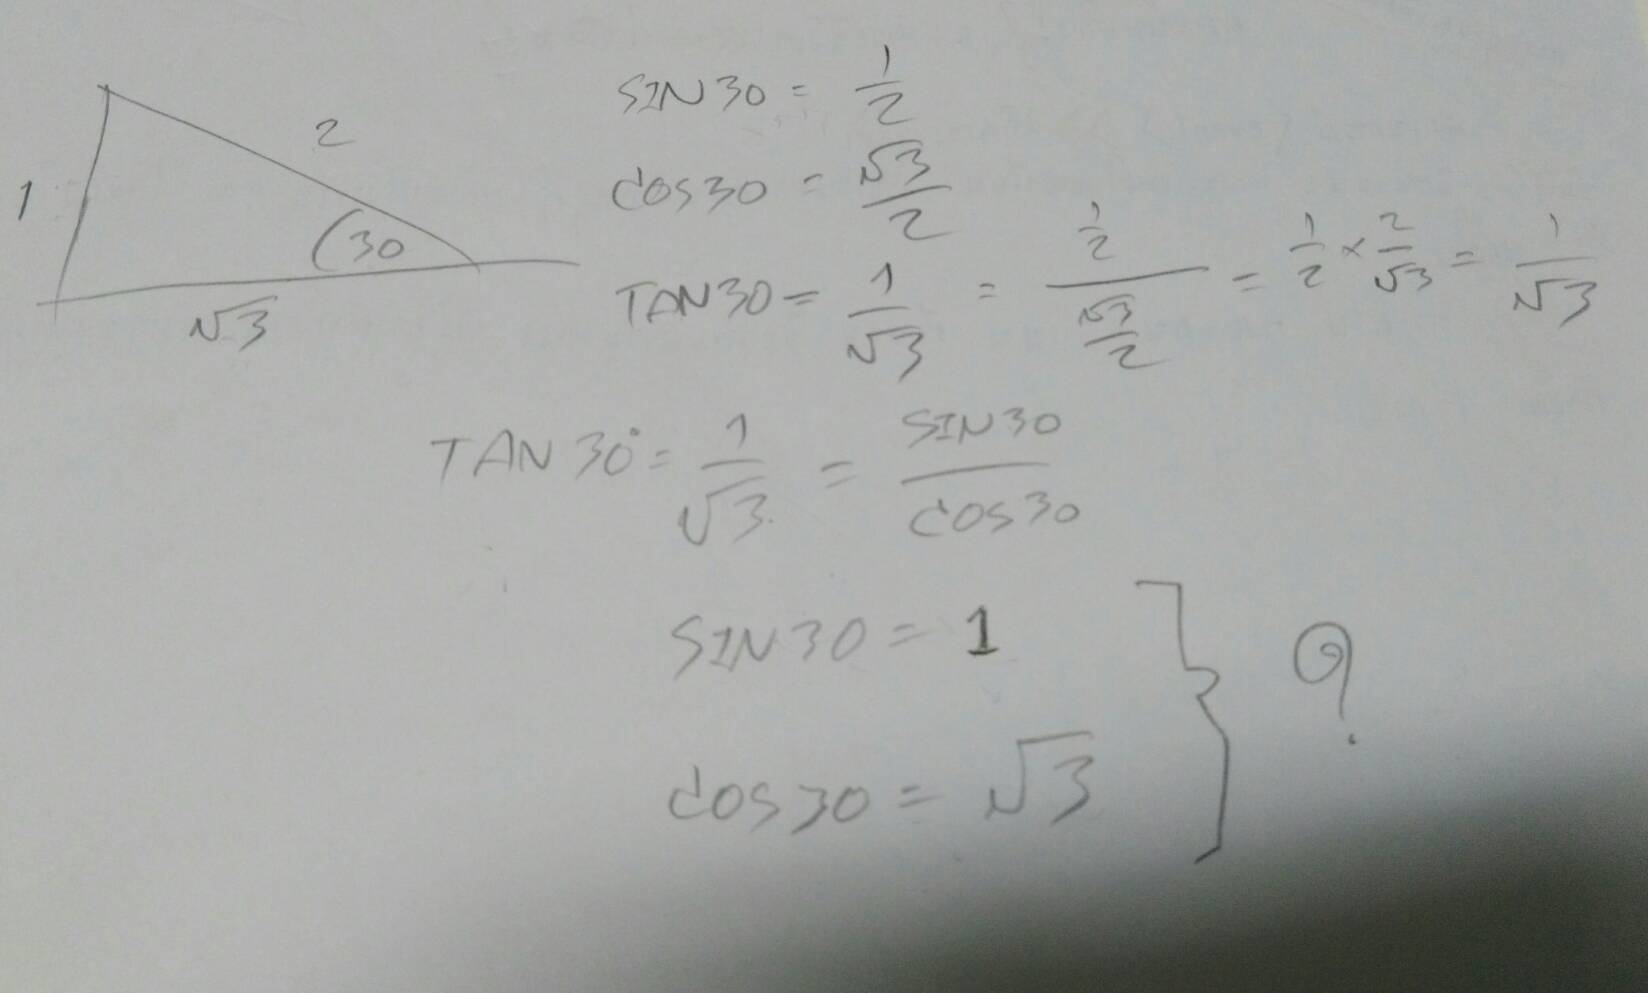 2
1
30
√3
SIN30 = 1/2
COS30 = √3/2
TAN30 = 1/√3 = (1/2)/(√3/2) = 1/2 × 2/√3 = 1/√3
TAN30° = 1/√3 = SIN30/COS30
SIN30 = 1
COS30 = √3
?